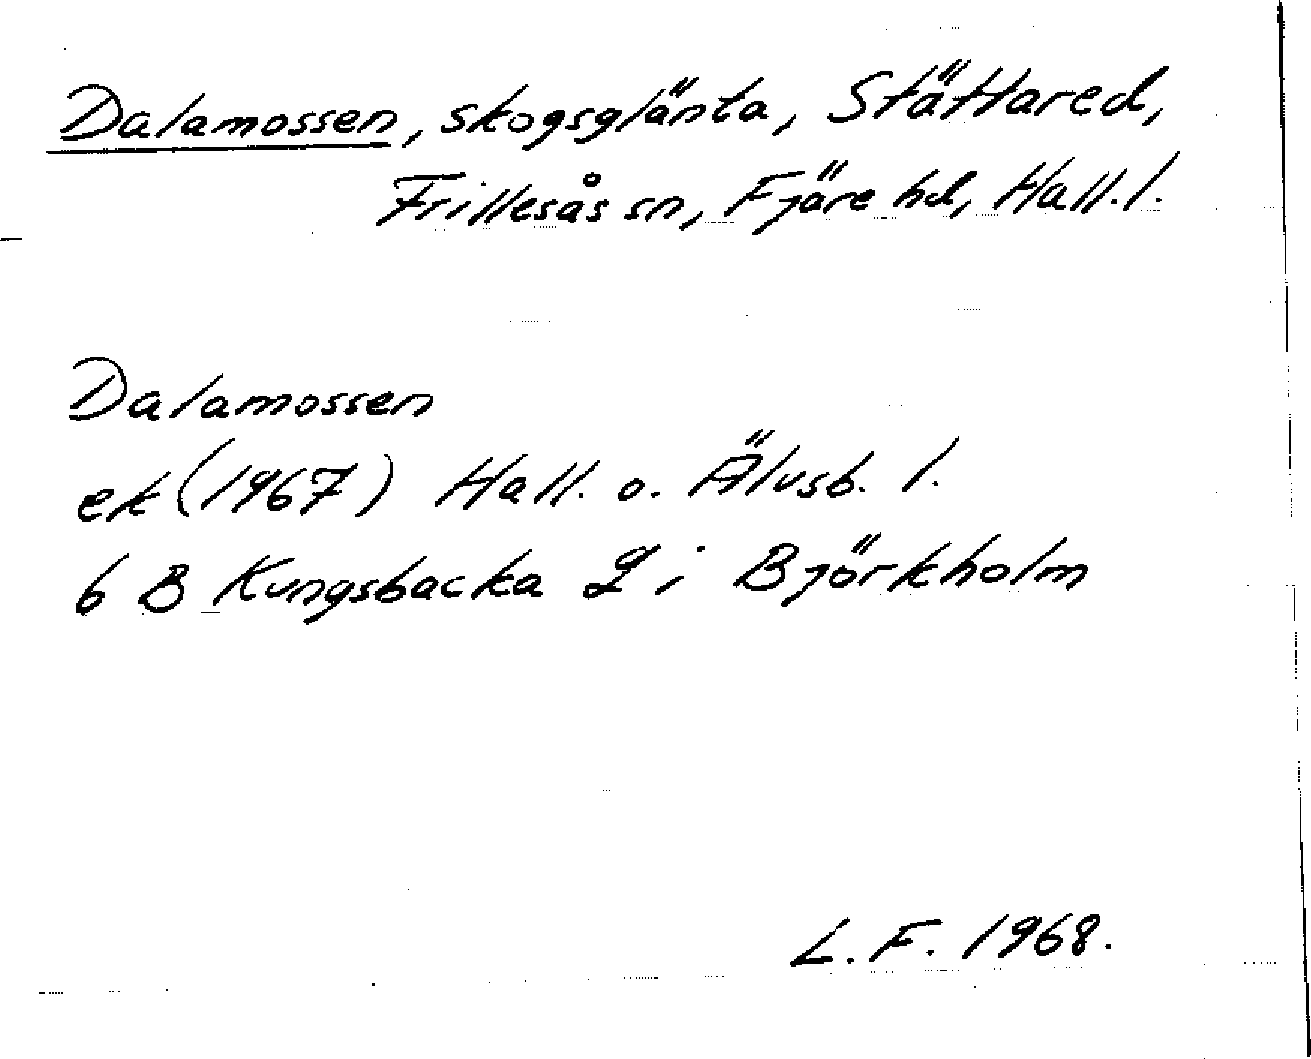 Dalamossen, skogsglänta, Stättared,
Frillesås sn, Fjäre hd, Hall. l.
Dalamossen
ek (1967) Hall. o. Älvsb. l.
6 B Kungsbacka 2 i Björkholm
L. F. 1968.